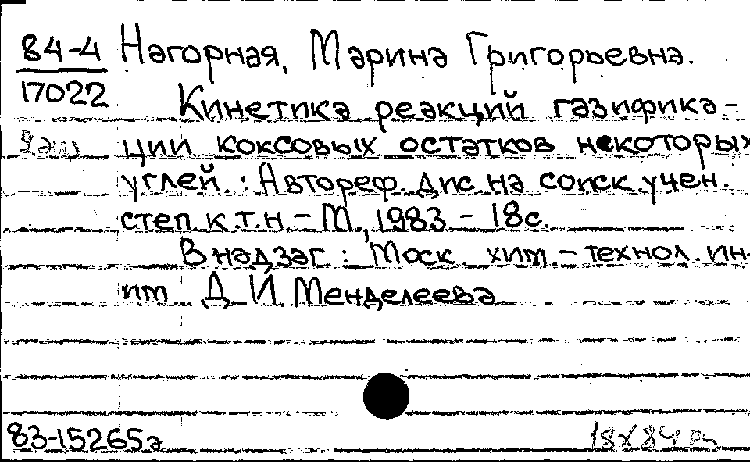 84-4 Нагорная, Марина Григорьевна.
17022 Кинетика реакций газифика-
ции коксовых остатков некоторых
углей. : Автореф. дис. на соиск. учен.
степ. к.т.н. - М., 1983 - 18с.
В надзаг : Моск. хим. - технол. ин-
ит Д И Менделеева
83-15265а